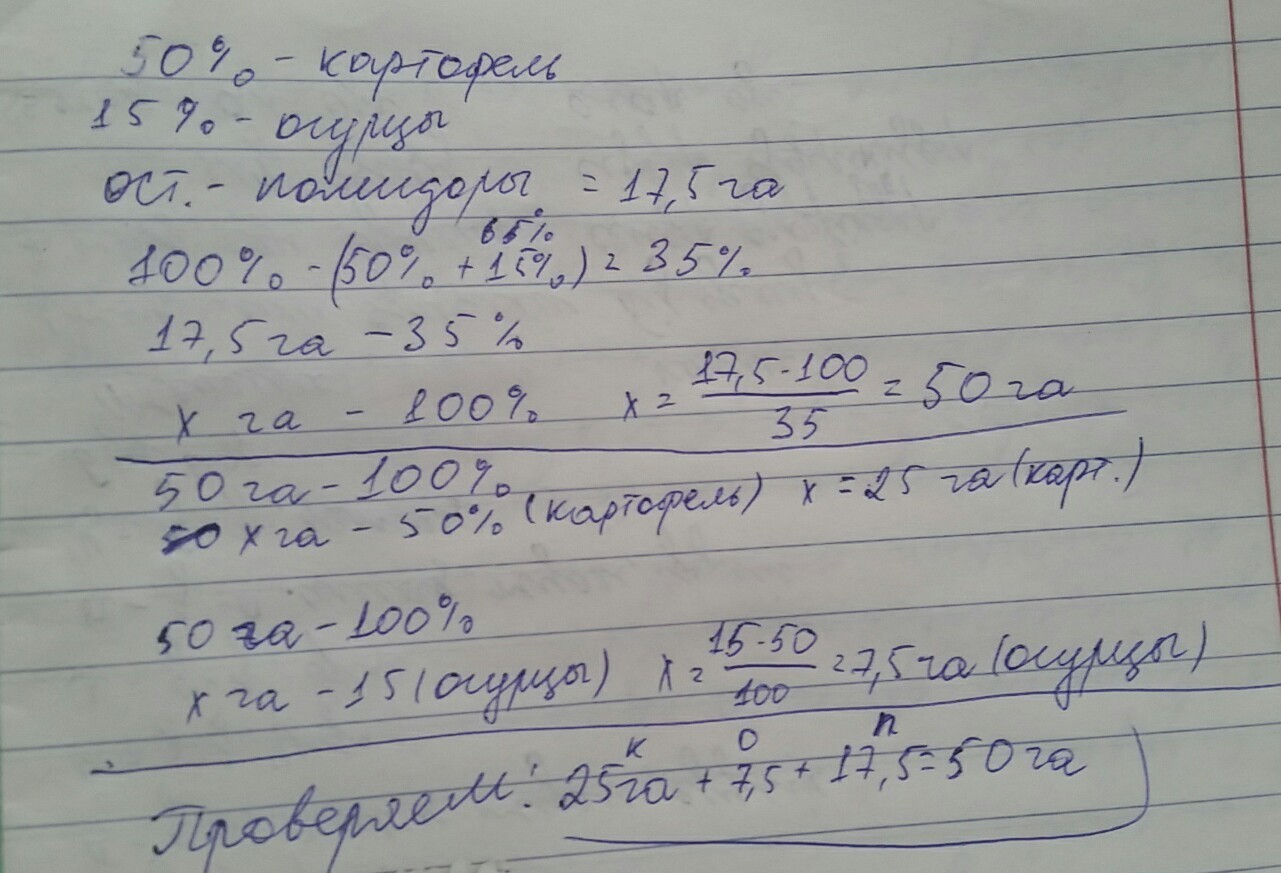 50% - картофель
15% - огурцы
ост. - помидоры = 17,5 га
65%
100% - (50% + 15%) = 35%
17,5 га - 35%
х га - 100% х = 17,5·100 / 35 = 50 га
50 га - 100%
50 х га - 50% (картофель) х = 25 га (карт.)
50 га - 100%
х га - 15 (огурцы) х = 15·50 / 100 = 7,5 га (огурцы)
к о п
Проверяем: 25га + 7,5 + 17,5 = 50 га